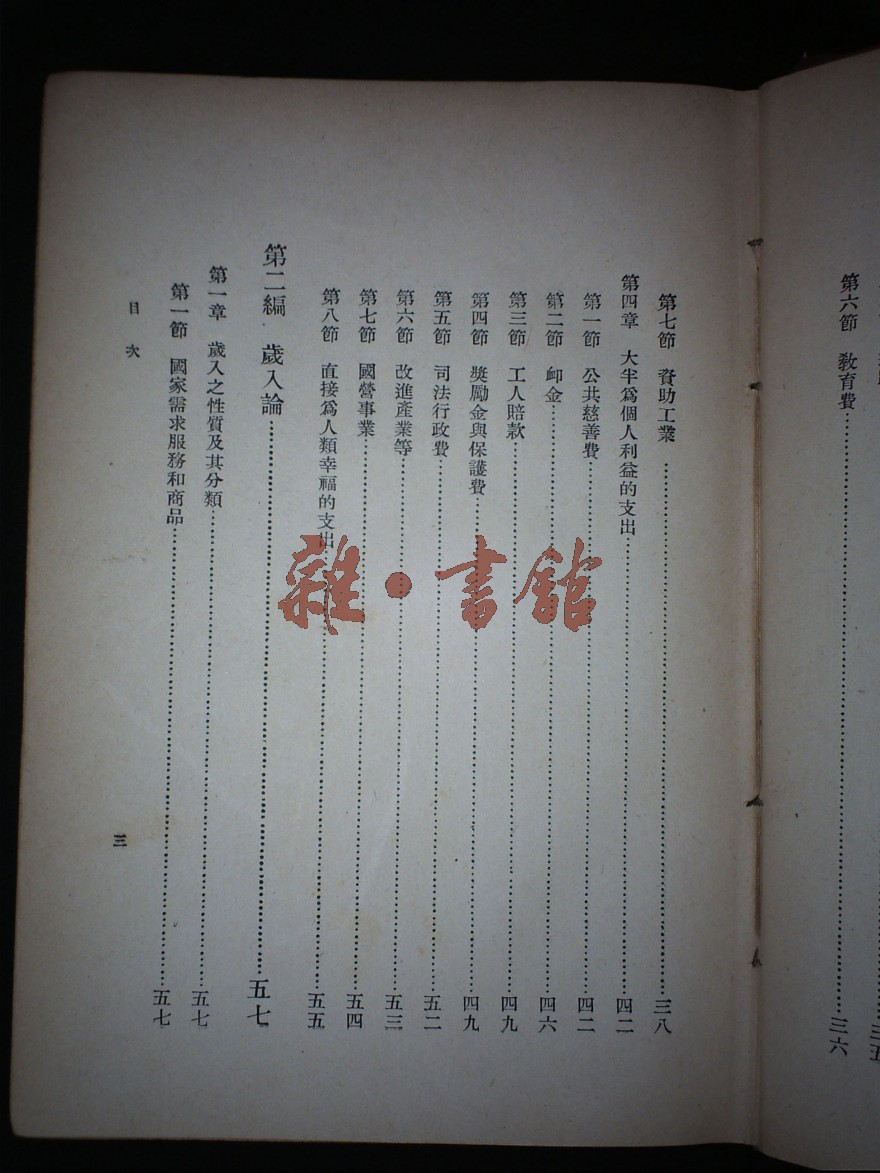 第六節 教育費……三六
第七節 資助工業……三八
第四章 大半爲個人利益的支出……四二
第一節 公共慈善費……四二
第二節 卹金……四六
第三節 工人賠款……四九
第四節 獎勵金與保護費……四九
第五節 司法行政費……五二
第六節 改進產業等……五三
第七節 國營事業……五四
第八節 直接爲人類幸福的支出……五五
第二編 歲入論……五七
第一章 歲入之性質及其分類……五七
第一節 國家需求服務和商品……五七
目次
三
雜·書館